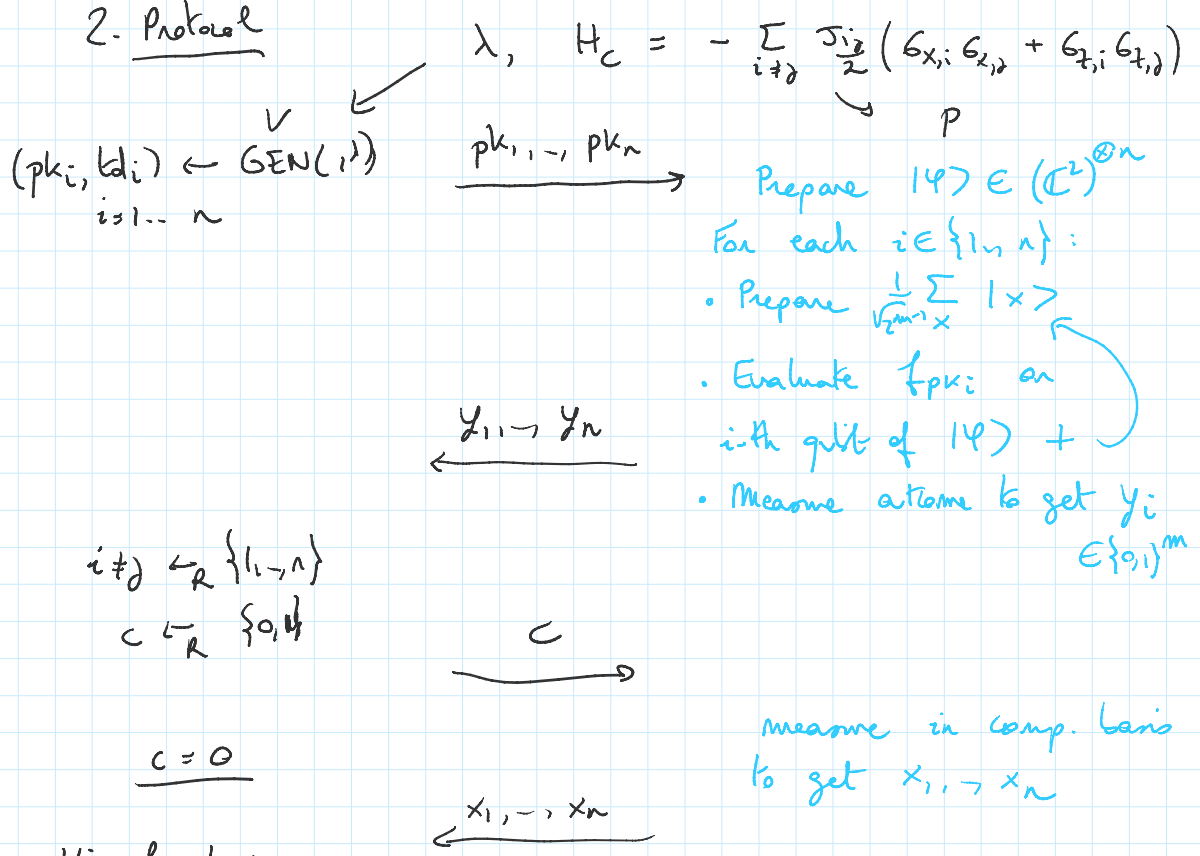 2. Protocol
λ, H_C = - Σ_{i≠j} J_{ij}/2 (σ_{x,i} σ_{x,j} + σ_{z,i} σ_{z,j})
V
P
(pk_i, td_i) ← GEN(1^λ)
i=1... n
pk_1, .., pk_n
Prepare |φ> ∈ (ℂ²)^{⊗n}
For each i∈{1,.., n} :
• Prepare 1/√(2^{m-1}) Σ_x |x>
• Evaluate f_{pk_i} on
i-th qubit of |φ> +
y_1, .., y_n
• Measure outcome to get y_i
∈{0,1}^m
i≠j ←_R {1,..,n}
c ←_R {0,1}
c
c = 0
measure in comp. basis
to get x_1, .., x_n
x_1, .., x_n